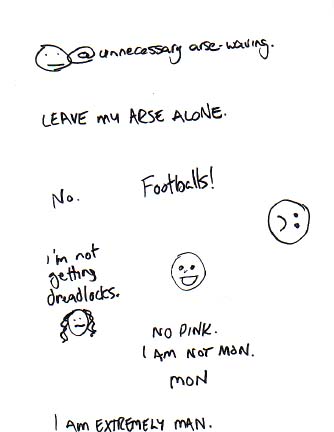 @ unnecessary arse-waving.
LEAVE MY ARSE ALONE.
No.
Footballs!
I'm not
getting
dreadlocks.
NO PINK.
I AM NOT MAN.
MON
I AM EXTREMELY MAN.